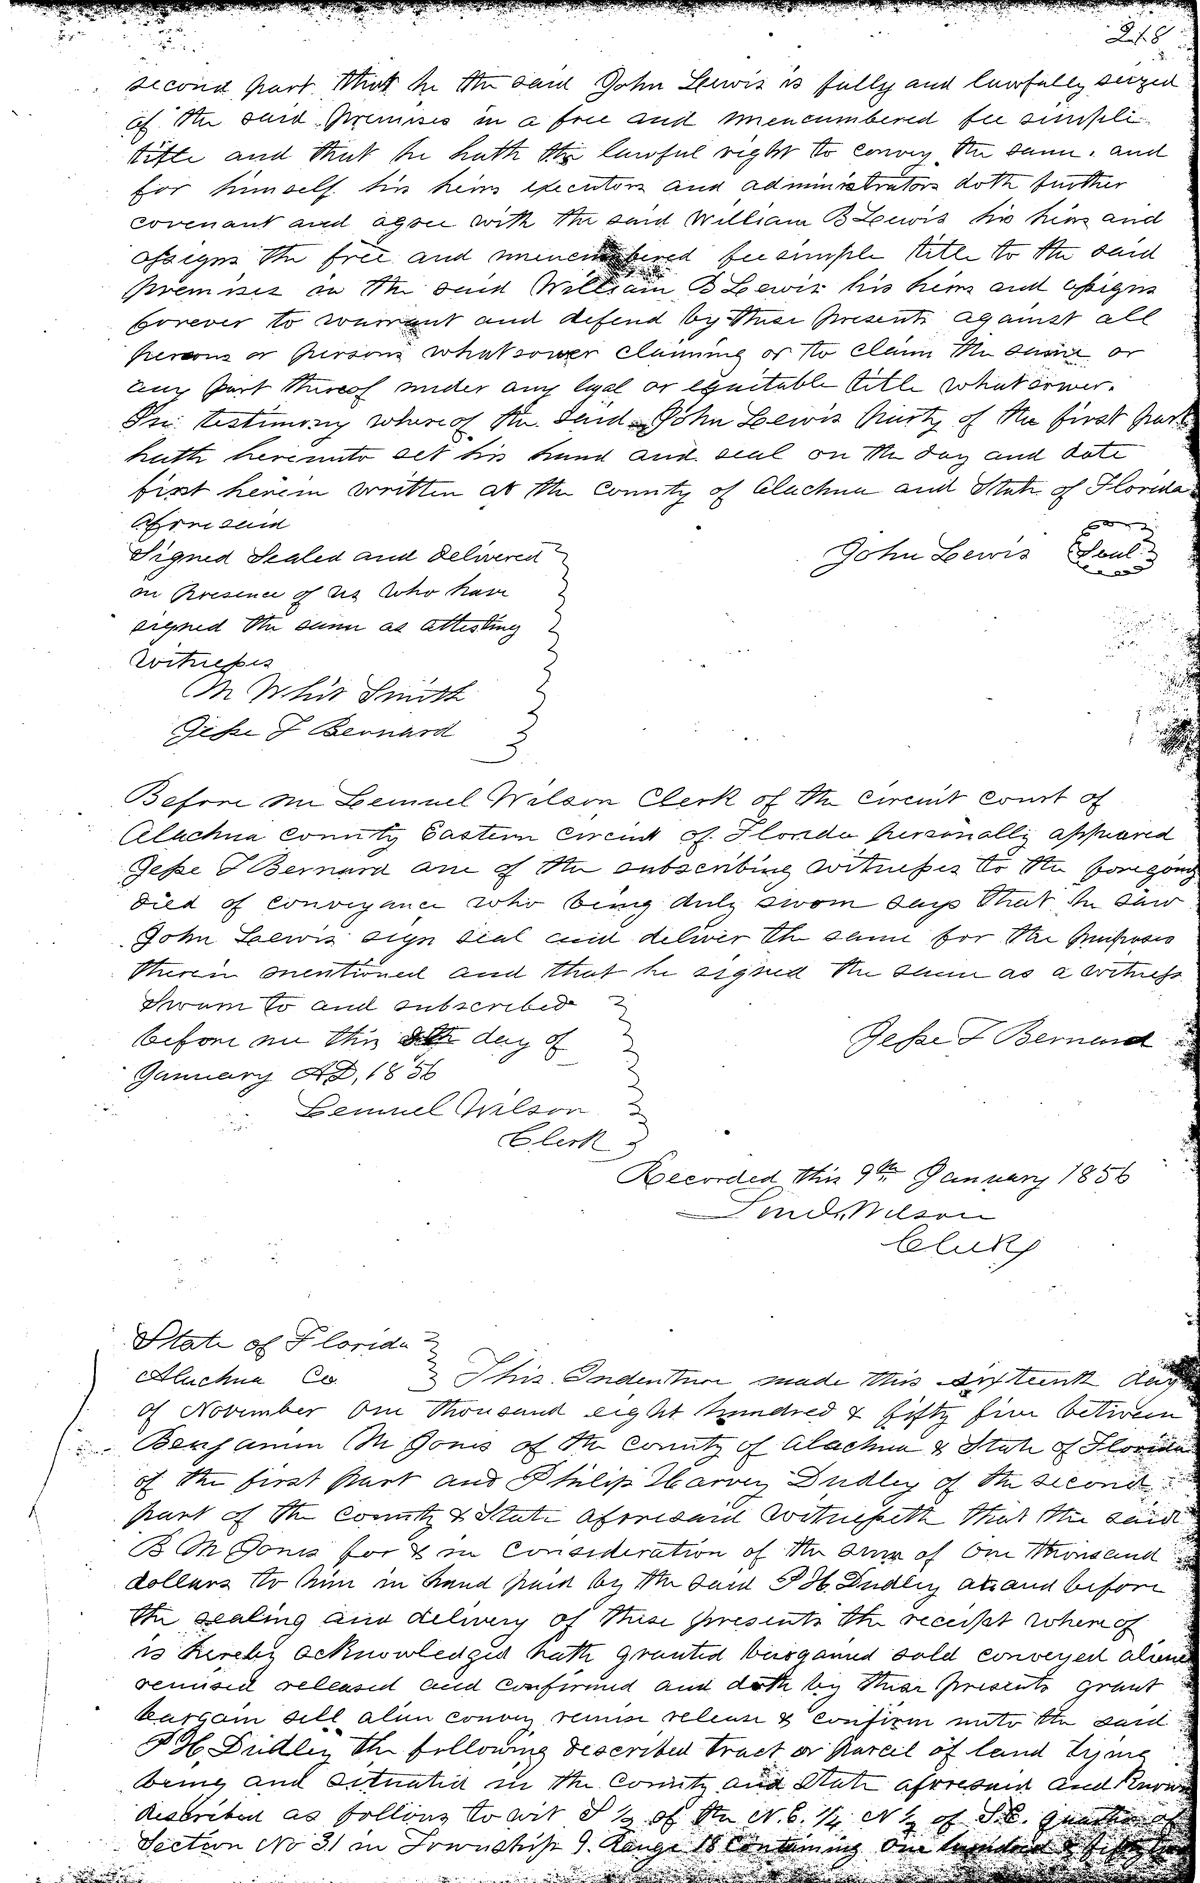 218
second part that he the said John Lewis is fully and lawfully seized
of the said premises in a free and unencumbered fee simple
title and that he hath the lawful right to convey the same. and
for himself his heirs executors and administrators doth further
covenant and agree with the said William B Lewis his heirs and
assigns the free and unencumbered fee simple title to the said
premises in the said William B Lewis his heirs and assigns
forever to warrant and defend by these presents against all
persons or persons whatsoever claiming or to claim the same or
any part thereof under any legal or equitable title whatsoever.
In testimony whereof the said John Lewis party of the first part
hath hereunto set his hand and seal on the day and date
first herein written at the county of Alachua and State of Florida
aforesaid
Signed Sealed and delivered
in presence of us who have
signed the same as attesting
witnesses
John Lewis Seal
M Whit Smith
Jesse F Bernard
Before me Lemuel Wilson Clerk of the circuit court of
Alachua county Eastern circuit of Florida personally appeared
Jesse F Bernard one of the subscribing witnesses to the foregoing
deed of conveyance who being duly sworn says that he saw
John Lewis sign seal and deliver the same for the purposes
therein mentioned and that he signed the same as a witness
Sworn to and subscribed
before me this 8th day of
January AD, 1856
Jesse F Bernard
Lemuel Wilson
Clerk
Recorded this 9th January 1856
Leml. Wilson
Clerk
State of Florida
Alachua Co This Indenture made this sixteenth day
of November one thousand eight hundred & fifty five between
Benjamin M Jones of the county of Alachua & State of Florida
of the first part and Philip Harvey Dudley of the second
part of the county & State aforesaid witnesseth that the said
B M Jones for & in consideration of the sum of one thousand
dollars to him in hand paid by the said P H Dudley at and before
the sealing and delivery of these presents the receipt whereof
is hereby acknowledged hath granted bargained sold conveyed aliened
remised released and confirmed and doth by these presents grant
bargain sell alien convey remise release & confirm unto the said
P H Dudley the following described tract or parcel of land lying
being and situated in the county and State aforesaid and known
described as follows to wit S 1/2 of the N.E. 1/4 N 1/2 of S.E. quarter of
Section No 31 in Township 9. Range 18 containing one hundred & fifty